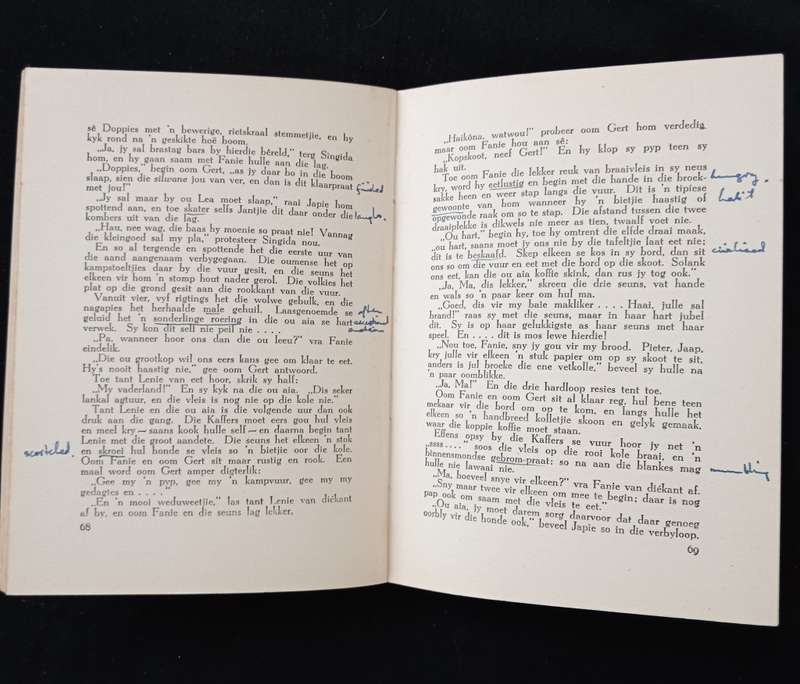 sê Doppies met 'n bewerige, rietskraal stemmetjie, en hy
kyk rond na 'n geskikte hoë boom.
„Ja, jy sal brastag bars by hierdie bêreld,” terg Singida
hom, en hy gaan saam met Fanie hulle aan die lag.
„Doppies,” begin oom Gert, „as jy daar bo in die boom
slaap, sien die silwane jou van ver, en dan is dit klaarpraat
met jou!”
„Jy sal maar by ou Lea moet slaap,” raai Japie hom
spottend aan, en toe skater selfs Jantjie dit daar onder die
kombers uit van die lag.
laughs.
„Hau, nee wag, die baas hy moenie so praat nie! Vannag
die kleingoed sal my pla,” protesteer Singida nou.
En so al tergende en spottende het die eerste uur van
die aand aangenaam verbygegaan. Die oumense het op
kampstoeltjies daar by die vuur gesit, en die seuns het
elkeen vir hom 'n stomp hout nader gerol. Die volkies het
plat op die grond gesit aan die rookkant van die vuur.
Vanuit vier, vyf rigtings het die wolwe gebulk, en die
nagapies het herhaalde male gehuil. Laasgenoemde se
often
geluid het 'n sonderlinge roering in die ou aia se hart
verwek. Sy kon dit self nie peil nie . . . .
„Pa, wanneer hoor ons dan die ou leeu?” vra Fanie
eindelik.
„Die ou grootkop wil ons eers kans gee om klaar te eet.
Hy's nooit haastig nie,” gee oom Gert antwoord.
Toe tant Lenie van eet hoor, skrik sy half:
„My vaderland!” En sy kyk na die ou aia. „Dis seker
lankal agtuur, en die vleis is nog nie op die kole nie.”
Tant Lenie en die ou aia is die volgende uur dan ook
druk aan die gang. Die Kaffers moet eers gou hul vleis
en meel kry — saans kook hulle self — en daarna begin tant
Lenie met die groot aandete. Die seuns het elkeen 'n stok
en skroei hul honde se vleis so 'n bietjie oor die kole.
scorched
Oom Fanie en oom Gert sit maar rustig en rook. Een
maal word oom Gert amper digterlik:
„Gee my 'n pyp, gee my 'n kampvuur, gee my my
gedagtes en . . . .
„En 'n mooi weduweetjie,” las tant Lenie van diékant
af by, en oom Fanie en die seuns lag lekker.
68
„Haikôna, watwou!” probeer oom Gert hom verdedig,
maar oom Fanie hou aan sê:
„Kopskoot, neef Gert!” En hy klop sy pyp teen sy
hak uit.
Toe oom Fanie die lekker reuk van braaivleis in sy neus
kry, word hy eetlustig en begin met die hande in die broek-
hungry.
sakke heen en weer stap langs die vuur. Dit is 'n tipiese
gewoonte van hom wanneer hy 'n bietjie haastig of
habit
opgewonde raak om so te stap. Die afstand tussen die twee
draaiplekke is dikwels nie meer as tien, twaalf voet nie.
„Ou hart,” begin hy, toe hy omtrent die elfde draai maak,
„ou hart, saans moet jy ons nie by die tafeltjie laat eet nie;
dit is te beskaafd. Skep elkeen se kos in sy bord, dan sit
civilised
ons so om die vuur en eet met die bord op die skoot. Solank
ons eet, kan die ou aia koffie skink, dan rus jy tog ook.”
„Ja, Ma, dis lekker,” skreeu die drie seuns, vat hande
en wals so 'n paar keer om hul ma.
„Goed, dis vir my baie makliker . . . . Haai, julle sal
brand!” raas sy met die seuns, maar in haar hart jubel
dit. Sy is op haar gelukkigste as haar seuns met haar
speel. En . . . . dit is mos lewe hierdie!
„Nou toe, Fanie, sny jy gou vir my brood. Pieter, Jaap,
kry julle vir elkeen 'n stuk papier om op sy skoot te sit,
anders is jul broeke die ene vetkolle,” beveel sy hulle na
'n paar oomblikke.
„Ja, Ma!” En die drie hardloop resies tent toe.
Oom Fanie en oom Gert sit al klaar reg, hul bene teen
mekaar vir die bord om op te kom, en langs hulle het
elkeen so 'n handbreed kolletjie skoon en gelyk gemaak,
waar die koppie koffie moet staan.
Effens opsy by die Kaffers se vuur hoor jy net 'n
„ssss . . . .” soos die vleis op die rooi kole braai, en 'n
binnensmondse gebrom-praat: so na aan die blankes mag
mumbling
hulle nie lawaai nie.
„Ma, hoeveel snye vir elkeen?” vra Fanie van diékant af.
„Sny maar twee vir elkeen om mee te begin; daar is nog
pap ook om saam met die vleis te eet.”
„Ou aia, jy moet darem sorg daarvoor dat daar genoeg
oorbly vir die honde ook,” beveel Japie so in die verbyloop.
69